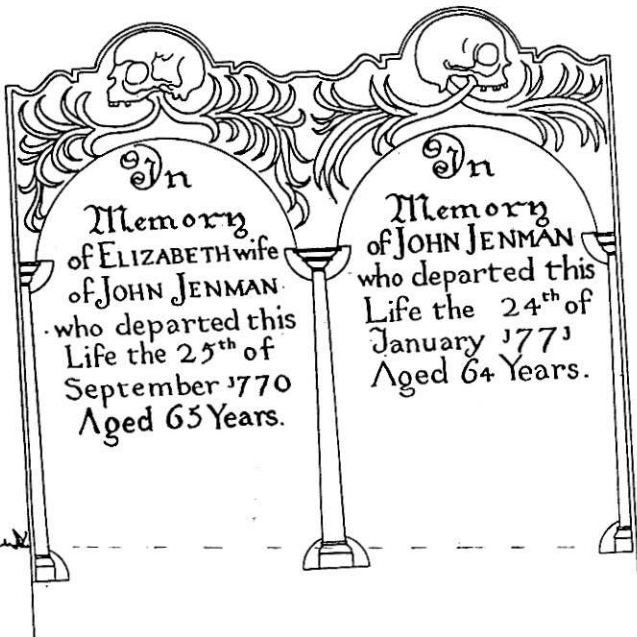 In
Memory
of ELIZABETH wife
of JOHN JENMAN
who departed this
Life the 25th of
September 1770
Aged 65 Years.
In
Memory
of JOHN JENMAN
who departed this
Life the 24th of
January 1771
Aged 64 Years.